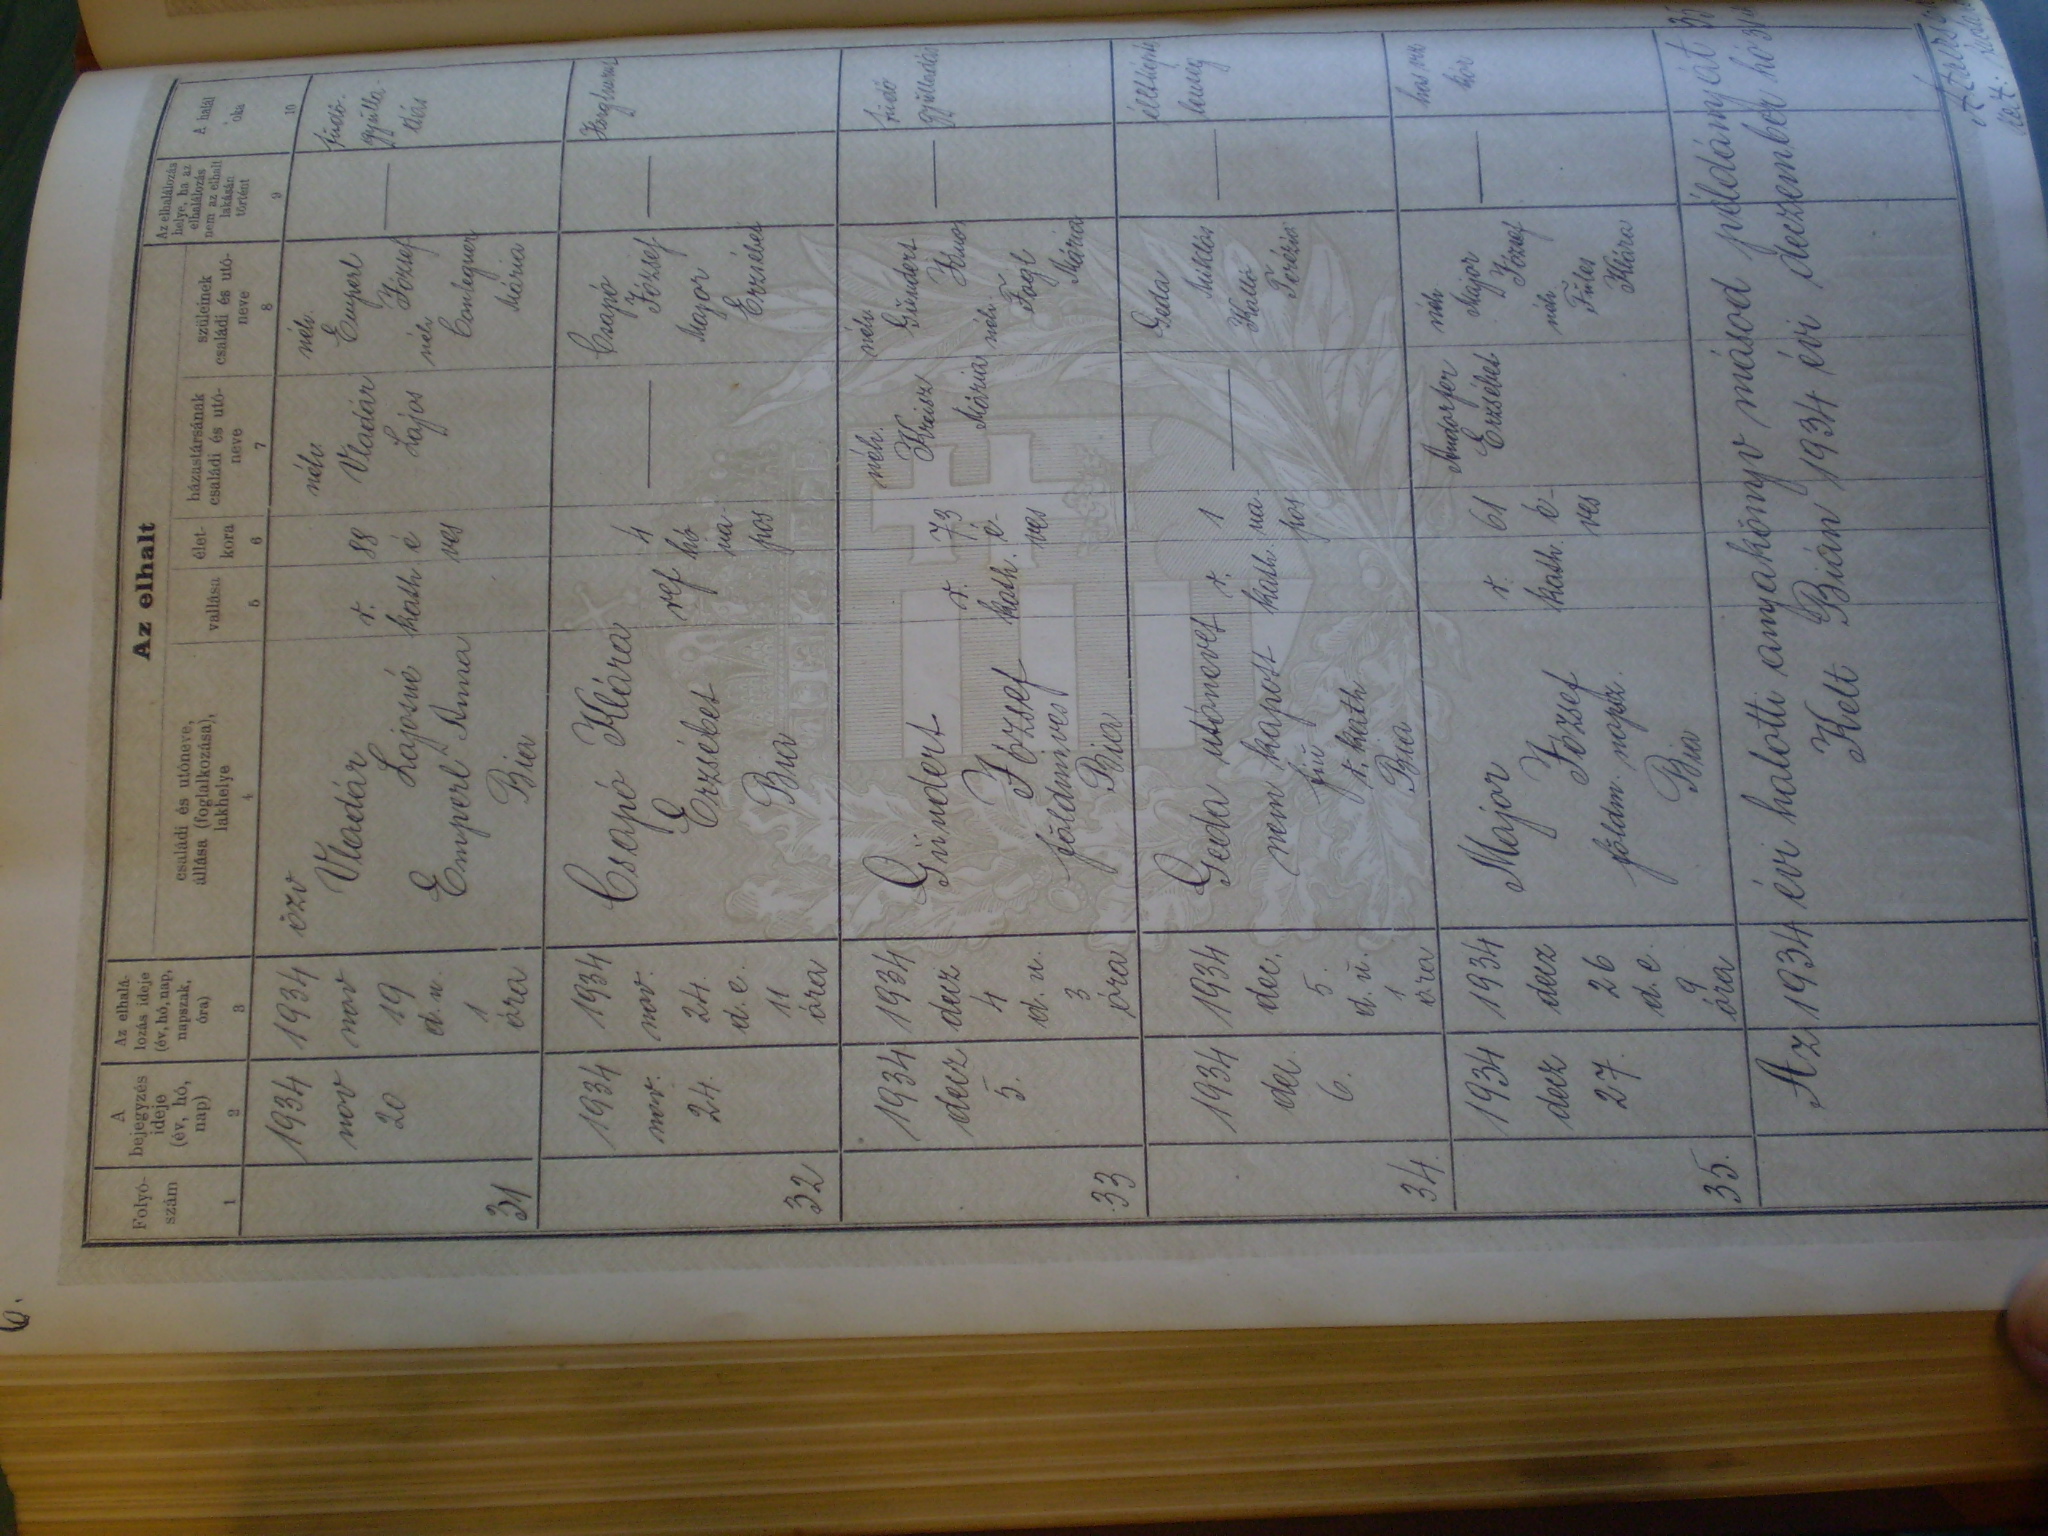 6.
Az elhalt
Folyó-
szám
A
bejegyzés
ideje
(év, hó,
nap)
Az elhalá-
lozás ideje
(év, hó, nap,
napszak,
óra)
családi és utóneve,
állása (foglalkozása),
lakhelye
vallása
élet-
kora
házastársának
családi és utó-
neve
szüleinek
családi és utó-
neve
Az elhalálozás
helye, ha az
elhalálozás
nem az elhalt
lakásán
történt
A halál
oka
1
2
3
4
5
6
7
8
9
10
31
1934
nov
20
1934
nov
19
d.u.
1
óra
özv
Vladár
Lajosné
Emperl Anna
Bia
r.
kath
88
é
ves
néh
Vladár
Lajos
néh.
Emperl
József
néh.
Mária
—
tüdő-
gyulla-
dás
32
1934
nov.
24.
1934
nov.
24.
d.e.
11
óra
Csapó Klára
Erzsébet
Bia
ref
4
hó
na-
pos
—
Csapó
József
Magor
Erzsébet
—
33
1934
decz
5.
1934
decz
4
d.u.
3
óra
Gündert
József
földmives
Bia
r.
kath.
73
é-
ves
néh.
Kreisz
Mária
néh.
Gündert
néh.
Mária
—
tüdő
gyulladás
34.
1934
dec.
6.
1934
dec.
5.
d.u.
1
óra
Geda utónevet
nem kapott
fiú
r. kath
Bia
r.
kath.
1
na-
pos
—
Geda
Miklós
Terézia
—
35.
1934
decz
27.
1934
decz
26
d.e.
9
óra
Major
József
földm. napsz.
Bia
r.
kath.
61
é-
ves
Andorfer
Erzsébet
néh
Major
József
néh
Füles
Klára
—
kór
Az 1934 évi halotti anyakönyv másod példányát 35
Kelt Bián 1934 évi deczember hó